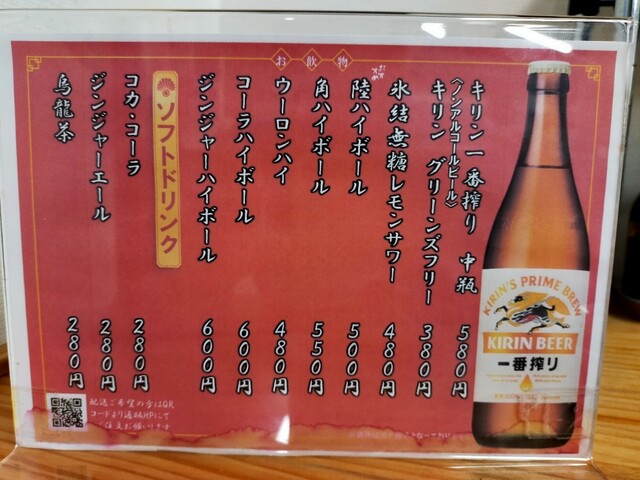 お飲物
キリン一番搾り 中瓶 580円
〈ノンアルコールビール〉
キリン グリーンズフリー 380円
おすすめ
氷結無糖レモンサワー 480円
陸ハイボール 500円
角ハイボール 550円
ウーロンハイ 480円
コーラハイボール 600円
ジンジャーハイボール 600円
ソフトドリンク
コカ・コーラ 280円
ジンジャーエール 280円
烏龍茶 280円
KIRIN'S PRIME BREW
KIRIN BEER
一番搾り
配送ご希望の方はQR
コードより通販HPにて
ご注文お願います